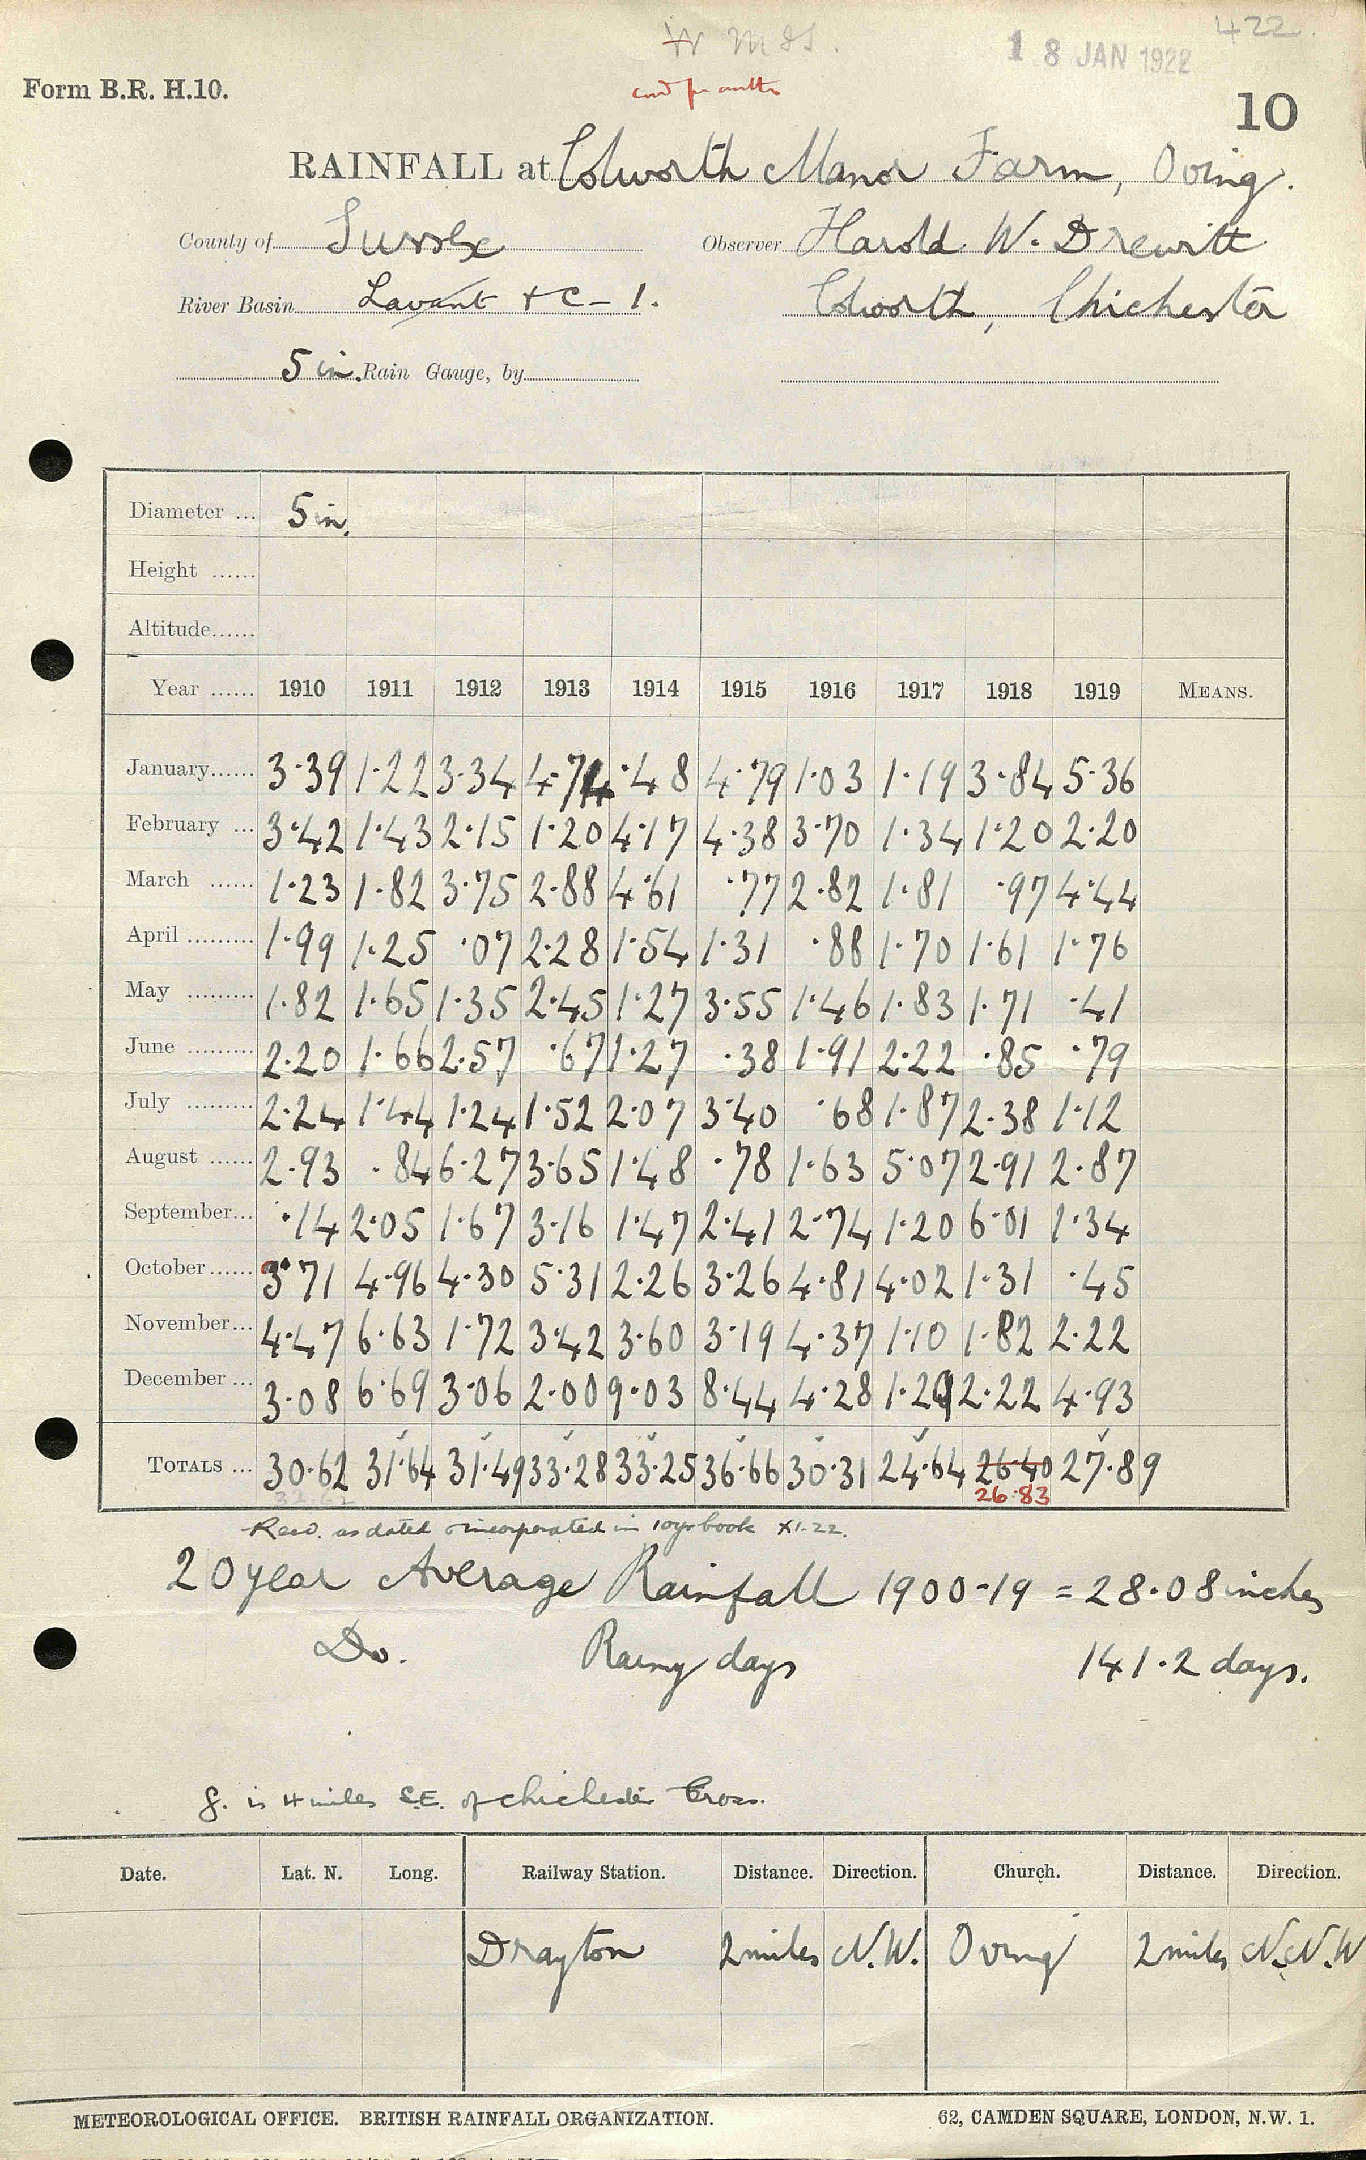 422.
18 JAN 1922
Form B.R. H.10.
10
RAINFALL at Colworth Manor Farm, Oving.
County of Sussex Observer Harold W. Drewitt
River Basin Lavant + C – 1. Colworth, Chichester
5 in. Rain Gauge, by
Diameter ... 5 in.
Height ......
Altitude......
Year ...... 1910 1911 1912 1913 1914 1915 1916 1917 1918 1919 MEANS.
January...... 3.39 1.22 3.34 4.74 .48 4.79 1.03 1.19 3.84 5.36
February ... 3.42 1.43 2.15 1.20 4.17 4.38 3.70 1.34 1.20 2.20
March ...... 1.23 1.82 3.75 2.88 4.61 .77 2.82 1.81 .97 4.44
April ......... 1.99 1.25 .07 2.28 1.54 1.31 .88 1.70 1.61 1.76
May ......... 1.82 1.65 1.35 2.45 1.27 3.55 1.46 1.83 1.71 .41
June ......... 2.20 1.66 2.57 .67 1.27 .38 1.91 2.22 .85 .79
July ......... 2.24 1.44 1.24 1.52 2.07 3.40 .68 1.87 2.38 1.12
August ...... 2.93 .84 6.27 3.65 1.48 .78 1.63 5.07 2.91 2.87
September... .14 2.05 1.67 3.16 1.47 2.41 2.74 1.20 6.01 1.34
October...... 3.71 4.96 4.30 5.31 2.26 3.26 4.81 4.02 1.31 .45
November... 4.47 6.63 1.72 3.42 3.60 3.19 4.37 1.10 1.82 2.22
December ... 3.08 6.69 3.06 2.00 9.03 8.44 4.28 1.29 2.22 4.93
TOTALS ... 30.62 31.64 31.49 33.28 33.25 36.66 30.31 24.64 26.40 27.89
26.83
Recd. as dated & incorporated in 10yr book XI.22.
20 year Average Rainfall 1900-19 = 28.08 inches
Do. Rainy days 141.2 days.
G. is 4 miles S.E. of Chichester Cross.
Date. Lat. N. Long. Railway Station. Distance. Direction. Church. Distance. Direction.
Drayton 2 miles N.W. Oving 2 miles N.N.W
METEOROLOGICAL OFFICE. BRITISH RAINFALL ORGANIZATION. 62, CAMDEN SQUARE, LONDON, N.W. 1.